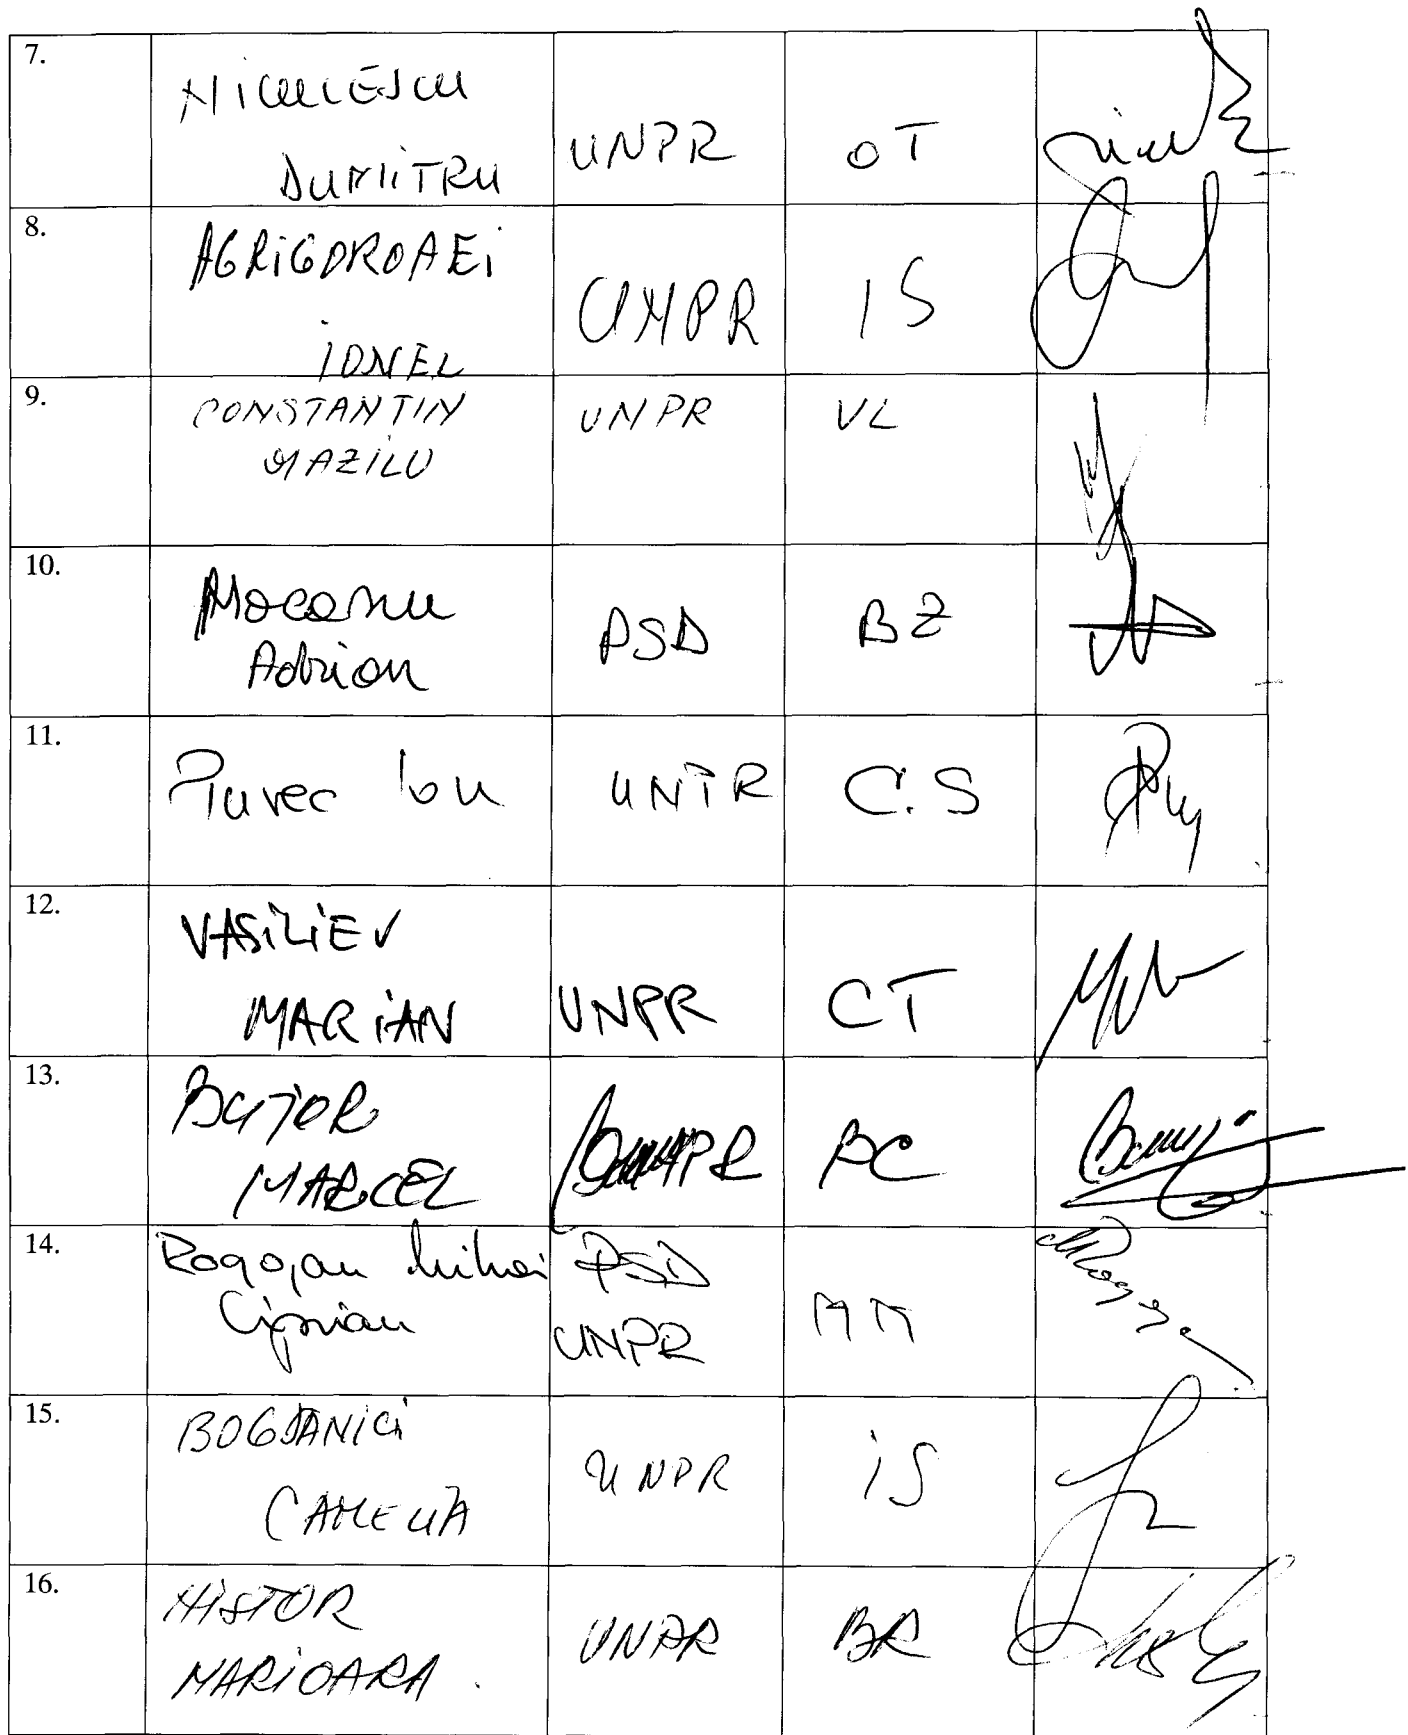 7.
NICULESCU
DUMITRU UNPR OT
8.
AGRIGOROAEI
IONEL UNPR IS
9.
CONSTANTIN UNPR VL
MAZILU
10.
Mocanu
Adrian PSD BZ
11.
Piuvec Ion UNPR C.S
12.
VASILIEV
MARIAN UNPR CT
13.
BUJOR
MARCEL BC
14.
Rogojan Mihai PSD
Ciprian UNPR MM
15.
BOGDANICI
CAMELIA UNPR IS
16.
NISTOR
MARIOARA. UNPR BR